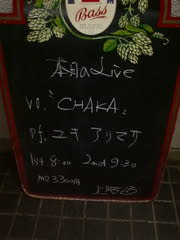 Bass
本日のLive
vo. "CHAKA"
pf. ユキ アリマサ
1st. 8:00 2nd 9:30
MC 3300円